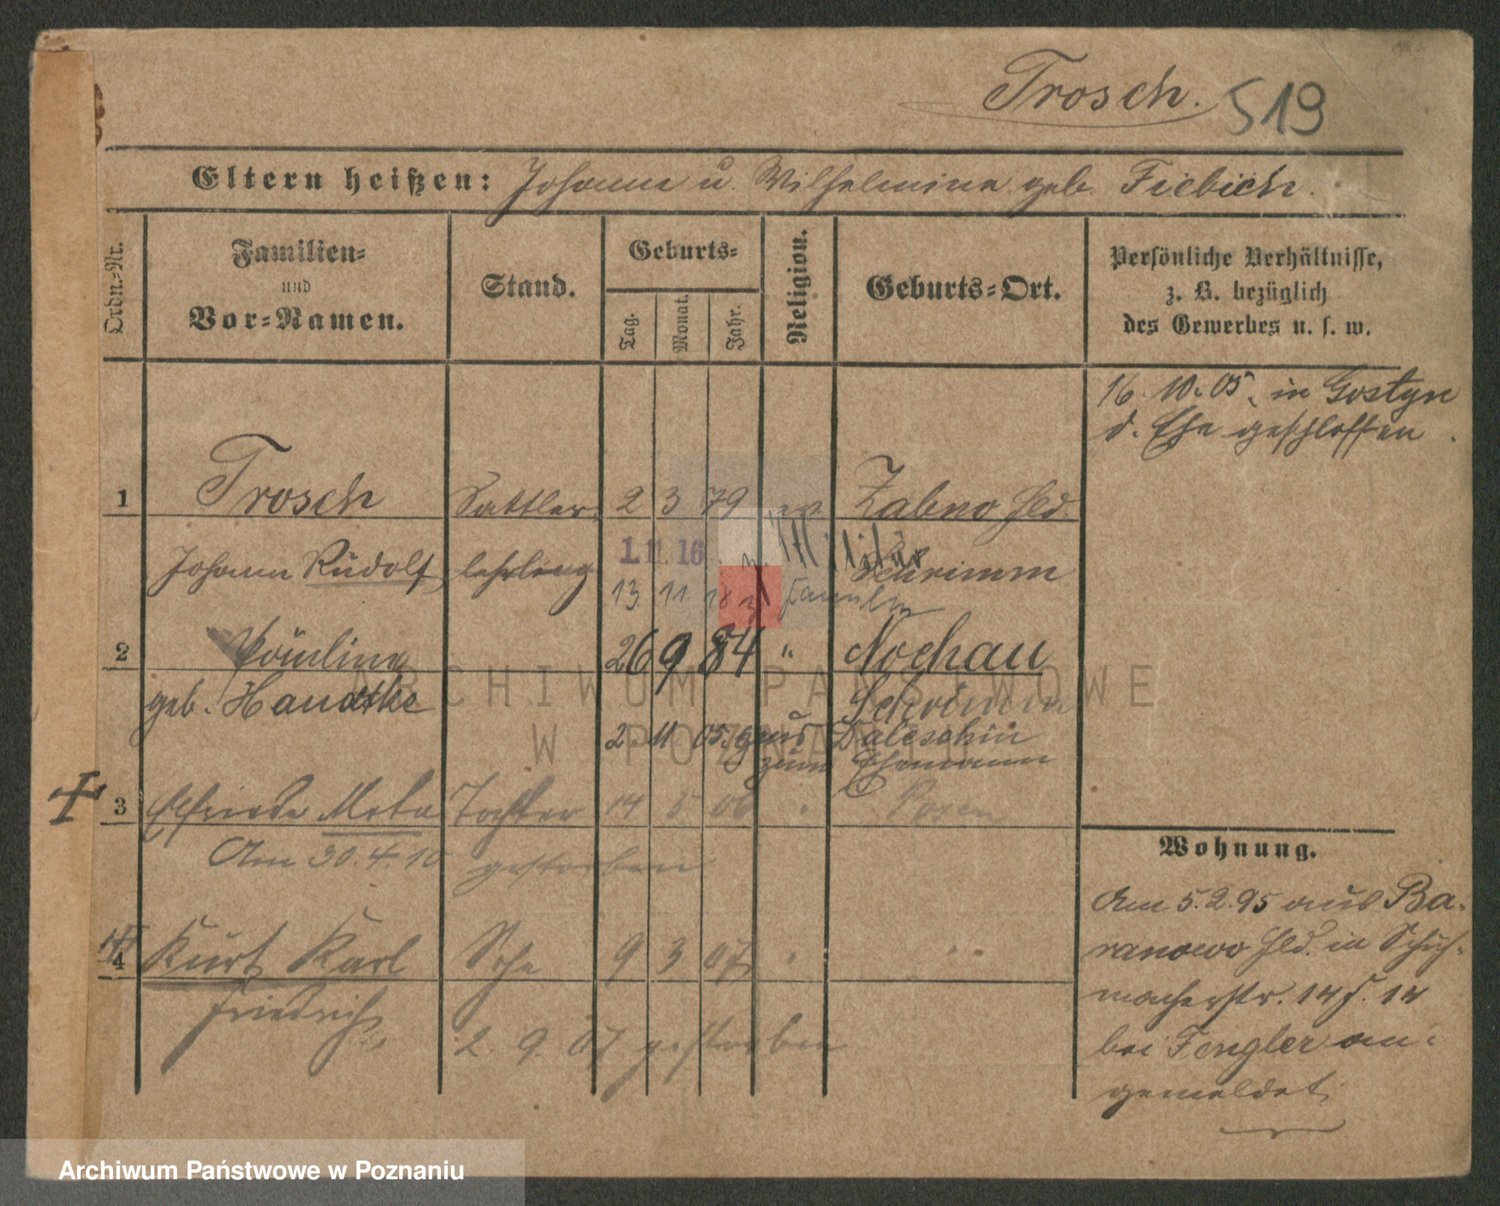 Trosch. 519
Eltern heißen: Johann u. Wilhelmina geb. Fiebich.
Ordn.-Nr.
Familien-
und
Vor-Namen.
Stand.
Geburts-
Tag.
Monat.
Jahr.
Religion.
Geburts-Ort.
Persönliche Verhältnisse,
z. B. bezüglich
des Gewerbes u. s. w.
16. 10. 05. in Gostyn
d. Ehe geschlossen.
1 Trosch Sattler 2 3 79 ev Zabno Hld.
1.11.16 Militär
Johann Rudolf lehrling Schrimm
13 11. 18
2 26 9 84 " Nochau
geb. Handtke Schrimm
2. 11. 05. Daleschin
zum Ehemann
3 Elfriede Meta Tochter 14 5 06 " Posen
Am 30.4.10 gestorben
4 Kurt Karl Sohn 9 3 07 " "
Friedrich
2. 9. 07 gestorben
Wohnung.
Am 5.2.95 aus Ba-
ranowo Hld. in Schuh-
macherstr. 14
bei Fengler an-
gemeldet.
ARCHIWUM PAŃSTWOWE
W POZNANIU
Archiwum Państwowe w Poznaniu